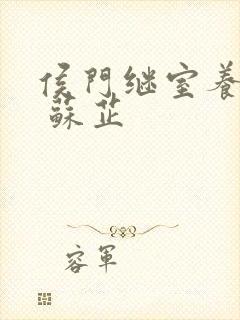 侯門继室養
蘇芷
容軍